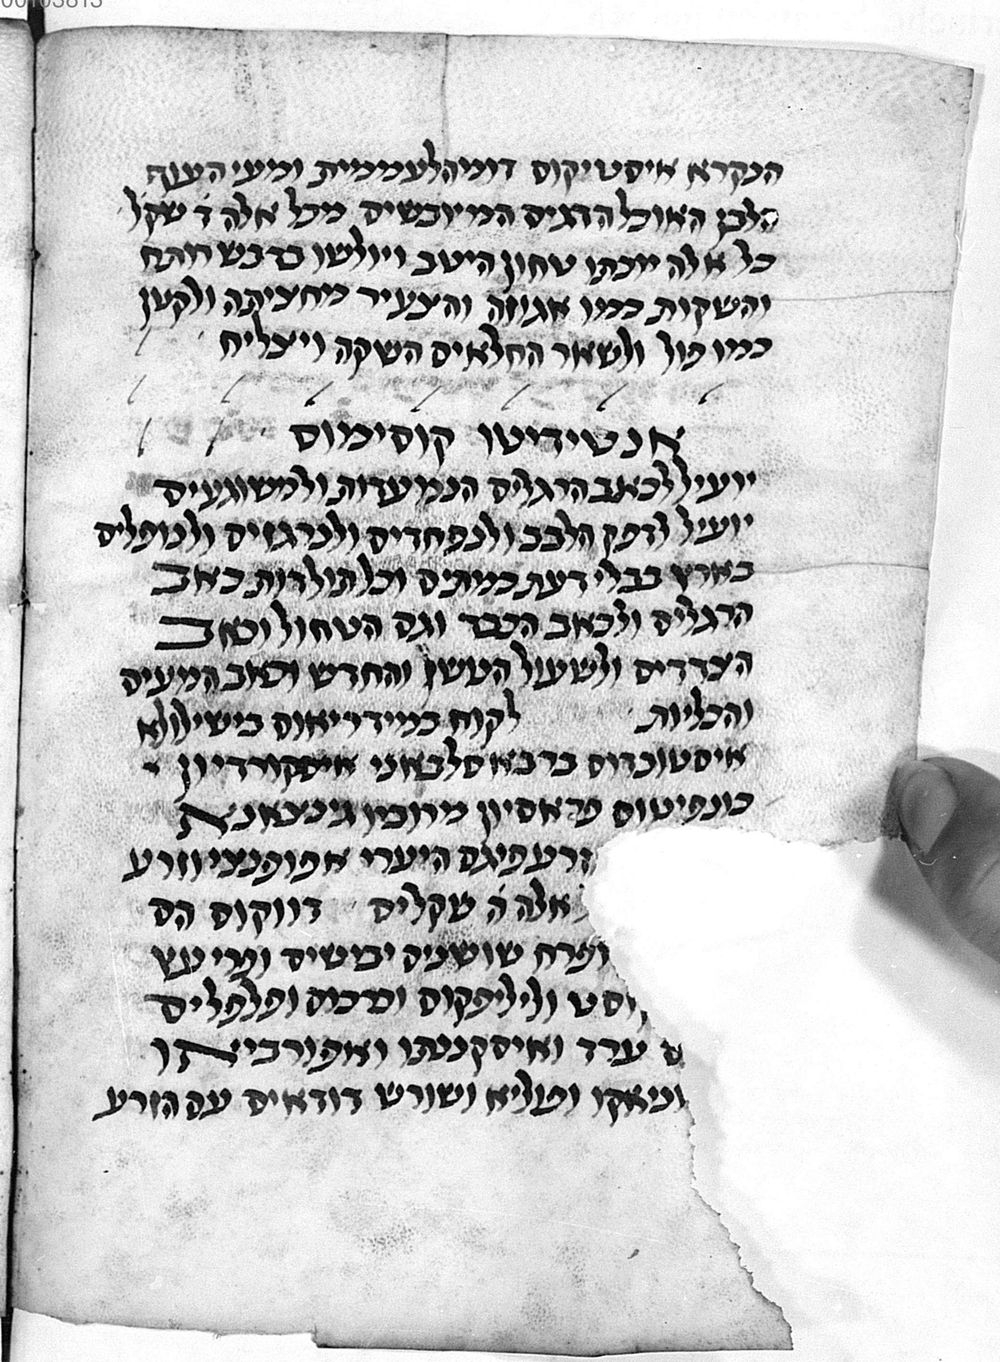 00103813
הנקרא איסטיקוס דומה לעממית ומעי העוף
הלבן האוכל הדגים המיובשים מכל אלה ד׳ שקל
כל אלה יוכתו טחון היטב ויולשו בדבש רותח
והשקות כמו אגוזה והצעיר מחציתה ולקטן
כמו פול ולשאר החלאים השקה ויצליח
אנטידיטו קוסימוס
יועיל לכאב הרגלים הנמעדות ולמשוגעים
יועיל לדפק הלבב ולנפחדים ולנרגזים ולנופלים
בארץ בבלי דעת כמתים וכל תולדות כאב
הרגלים ולכאב הכבד וגם הטחול וכאב
הצדדים ולשיעול הישן והחדש וכאב המעים
והכליות לקוח כמידריאוס בישילולא
איסטוכדוס ברבא סלבאני איסקורדיון י
כונפיטוס פראסיון מירובו גינצאנא
זרע פיגם היערי אפופנצי וזרע
אלה ה׳ שקלים דווקוס הם
ופרח שושנים יבשים ופרי עץ
וסט וליליפקוס וכרכום ופלפלים
ערד ואיסקננתו ואפורביאון
וניאקו ופוליא ושורש דודאים עם הזרע